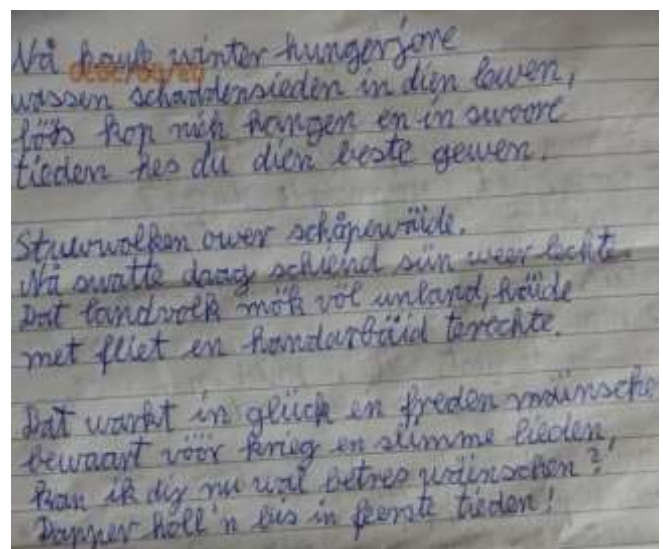 Nå houle winter hungerjore
wassen schaddensieden in dien lewen,
löös kop nich hangen en in swoore
tieden hes du dien beste gewen.
Stuwwolken ower schåpewäide.
Nå swatte daag schiend sün weer lechte.
Dat landvolk mök völ unland, häide
met fliet en handarbäid terechte.
Dat warkt in glück en freden mäinsche
bewaart vöör krieg en slimme lieden,
kan ik dij nu wal betres wäinschen?
Dapper holl'n bis in feerste tieden!